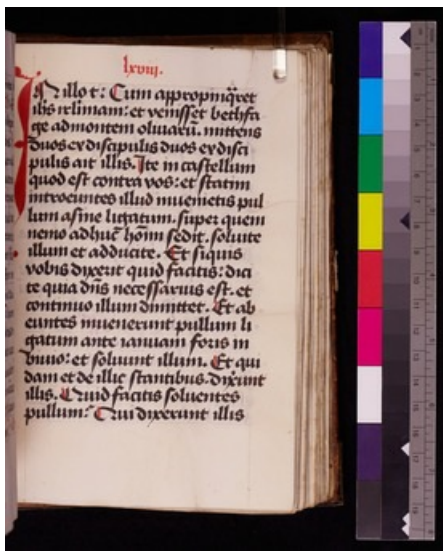 lxviii.
In illo t: Cum appropinq̃ret
ihs̃ irłimam: et venisset bethfa
ge ad montem oliuarũ. mittens
duos ex discipulis duos ex disci
pulis ait illis. Ite in castellum
quod est contra vos: et statim
introeuntes illud inuenietis pul
lum asine ligatum. super quem
nemo adhuc̃ hom̃ sedit. soluite
illum et adducite. Et siquis
vobis dixerit quid facitis: dici
te quia dñs necessarius est. et
continuo illum dimittet. Et ab
euntes inuenerunt pullum li
gatum ante ianuam foris in
biuio: et soluunt illum. Et qui
dam et de illic stantibus. dixerunt
illis. Quid facitis soluentes
pullum: Qui dixerunt illis